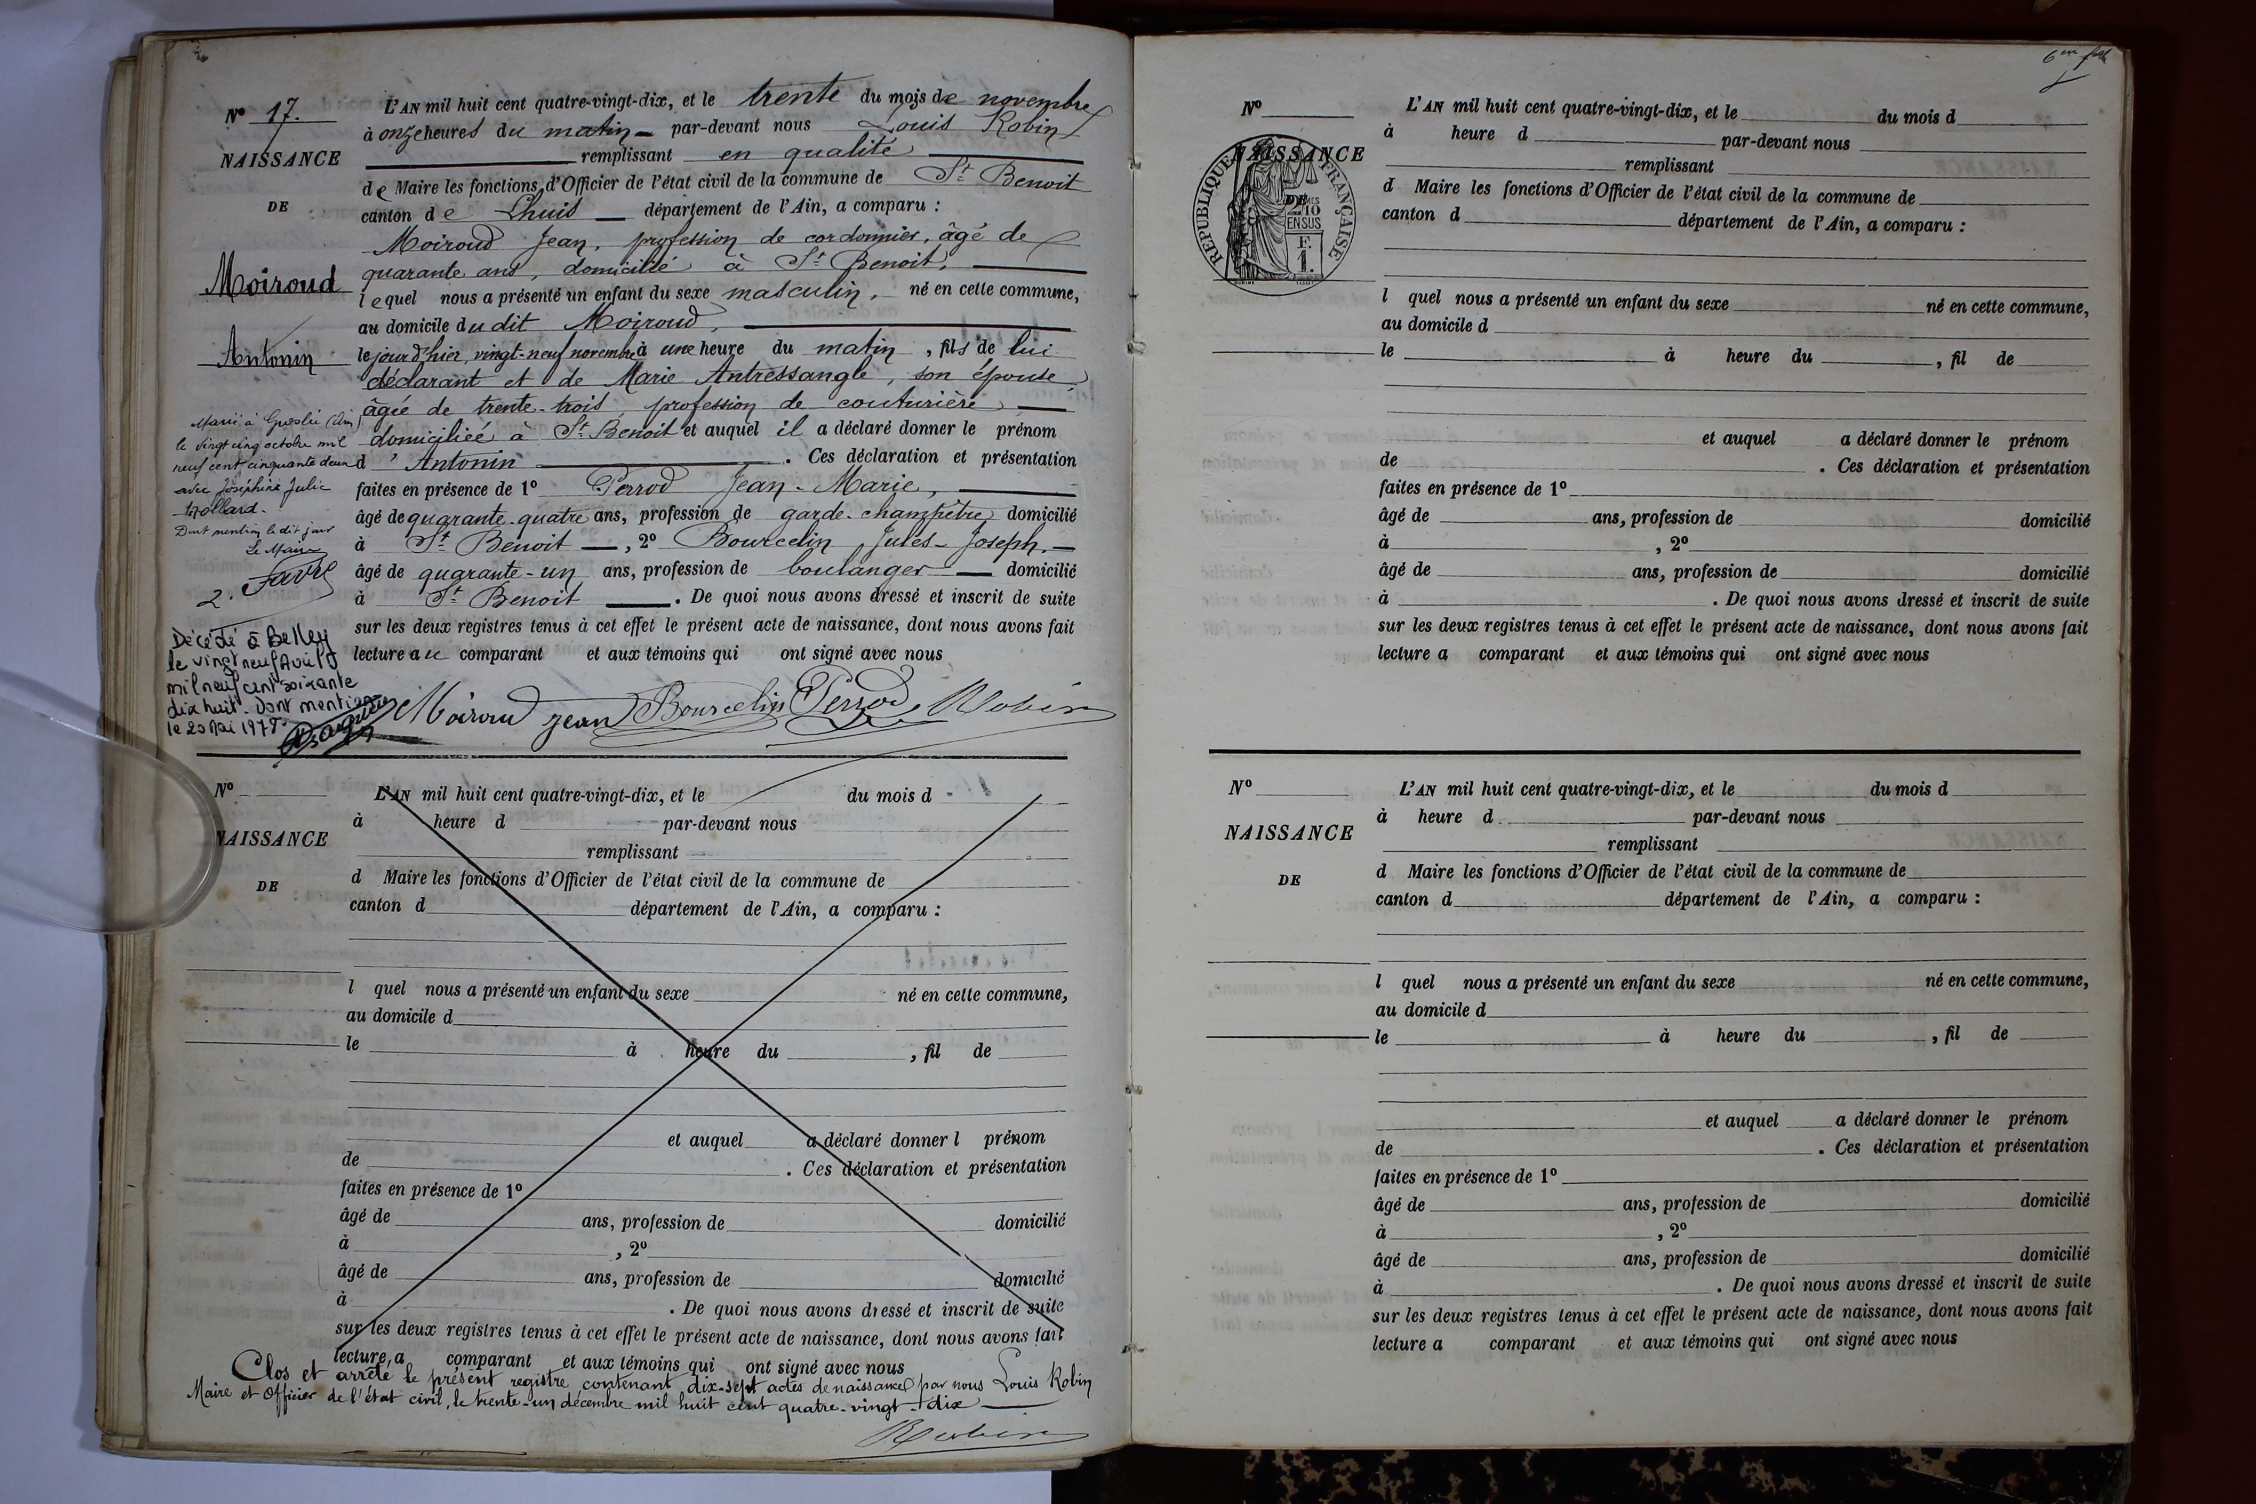 Nº 17.
NAISSANCE
DE
Moiroud
Antonin
L'AN mil huit cent quatre-vingt-dix, et le trente du mois de novembre
à onze heures du matin par-devant nous Louis Robin
remplissant en qualité
de Maire les fonctions d'Officier de l'état civil de la commune de St Benoit
canton de Lhuis département de l'Ain, a comparu :
Moiroud Jean, profession de cordonnier, âgé de
quarante ans, domicilié à St Benoit,
lequel nous a présenté un enfant du sexe masculin, né en cette commune,
au domicile du dit Moiroud,
le jour d'hier, vingt-neuf novembre à une heure du matin, fils de lui
déclarant et de Marie Antressangle, son épouse,
âgée de trente-trois, profession de couturière
domiciliée à St Benoit et auquel il a déclaré donner le prénom
d'Antonin. Ces déclaration et présentation
faites en présence de 1º Perrod Jean-Marie,
âgé de quarante-quatre ans, profession de garde-champêtre domicilié
à St Benoit, 2º Bourcelin Jules-Joseph.
âgé de quarante-un ans, profession de boulanger domicilié
à St Benoit. De quoi nous avons dressé et inscrit de suite
sur les deux registres tenus à cet effet le présent acte de naissance, dont nous avons fait
lecture au comparant et aux témoins qui ont signé avec nous
Moiroud Jean Bourcelin Perrod Robin
Marié à Groslée (Ain)
le vingt cinq octobre mil
neuf cent cinquante deux
avec Joséphine Julie
Dont mention le dit jour
Le Maire
Favre
2.
Décédé à Belley
le vingt neuf Avril
mil neuf cent soixante
dix huit. Dont mention
le 20 Mai 1978.
Nº
NAISSANCE
DE
L'AN mil huit cent quatre-vingt-dix, et le du mois d
à heure d par-devant nous
remplissant
d Maire les fonctions d'Officier de l'état civil de la commune de
canton d département de l'Ain, a comparu :
l quel nous a présenté un enfant du sexe né en cette commune,
au domicile d
le à heure du , fil de
et auquel a déclaré donner l prénom
de . Ces déclaration et présentation
faites en présence de 1º
âgé de ans, profession de domicilié
à , 2º
âgé de ans, profession de domicilié
à . De quoi nous avons dressé et inscrit de suite
sur les deux registres tenus à cet effet le présent acte de naissance, dont nous avons fait
lecture a comparant et aux témoins qui ont signé avec nous
Clos et arrêté le présent registre contenant dix-sept actes de naissances par nous Louis Robin
Maire et Officier de l'état civil, le trente-un décembre mil huit cent quatre-vingt-dix
Robin
Nº
NAISSANCE
DE
RÉPUBLIQUE FRANÇAISE
10
EN SUS
F.
1.
L'AN mil huit cent quatre-vingt-dix, et le du mois d
à heure d par-devant nous
remplissant
d Maire les fonctions d'Officier de l'état civil de la commune de
canton d département de l'Ain, a comparu :
l quel nous a présenté un enfant du sexe né en cette commune,
au domicile d
le à heure du , fil de
et auquel a déclaré donner le prénom
de . Ces déclaration et présentation
faites en présence de 1º
âgé de ans, profession de domicilié
à , 2º
âgé de ans, profession de domicilié
à . De quoi nous avons dressé et inscrit de suite
sur les deux registres tenus à cet effet le présent acte de naissance, dont nous avons fait
lecture a comparant et aux témoins qui ont signé avec nous
Nº
NAISSANCE
DE
L'AN mil huit cent quatre-vingt-dix, et le du mois d
à heure d par-devant nous
remplissant
d Maire les fonctions d'Officier de l'état civil de la commune de
canton d département de l'Ain, a comparu :
l quel nous a présenté un enfant du sexe né en cette commune,
au domicile d
le à heure du , fil de
et auquel a déclaré donner le prénom
de . Ces déclaration et présentation
faites en présence de 1º
âgé de ans, profession de domicilié
à , 2º
âgé de ans, profession de domicilié
à . De quoi nous avons dressé et inscrit de suite
sur les deux registres tenus à cet effet le présent acte de naissance, dont nous avons fait
lecture a comparant et aux témoins qui ont signé avec nous